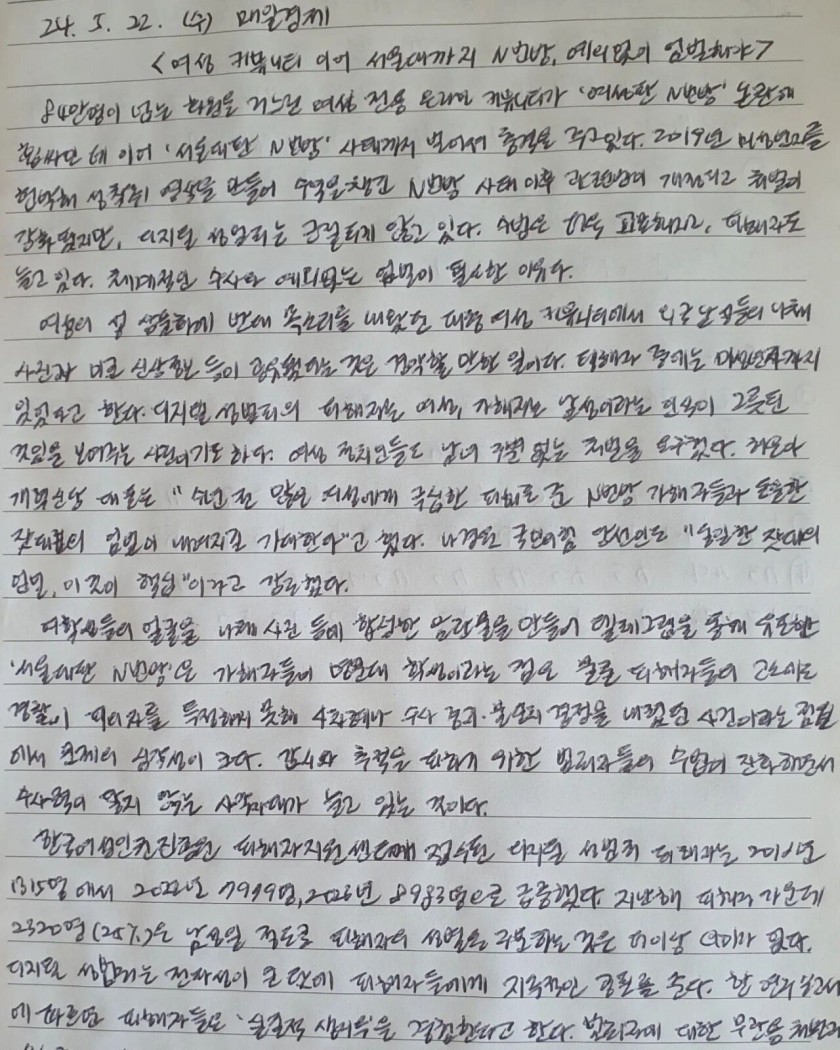 24. 5. 22. (수) 매일경제
<여성 커뮤니티 이어 서울대까지 N번방, 예외없이 엄벌해야>
84만명이 넘는 회원을 거느린 여성 전용 온라인 커뮤니티가 '여성판 N번방' 논란에
휩싸인 데 이어 '서울대판 N번방' 사태까지 벌어져 충격을 주고 있다. 2019년 미성년자를
협박해 성착취 영상을 만들어 수익을 챙긴 N번방 사태 이후 관련법이 개정되고 처벌이
강화됐지만, 디지털 성범죄는 근절되지 않고 있다. 수법은 더욱 교묘해지고, 피해자도
늘고 있다. 체계적인 수사와 예외없는 엄벌이 필요한 이유다.
여성의 성 상품화에 반대 목소리를 내왔던 대형 여성 커뮤니티에서 외국 남성들의 나체
사진과 미군 신상정보 등이 공유됐다는 것은 경악할 만한 일이다. 피해자 중에는 미성년자까지
있었다고 한다. 디지털 성범죄의 피해자는 여성, 가해자는 남성이라는 인식이 그릇된
것임을 보여주는 사건이기도 하다. 여성 정치인들도 남녀 구별 없는 처벌을 요구했다. 허은아
개혁신당 대표는 "수년 전 많은 여성에게 극심한 피해를 준 N번방 가해자들과 동일한
잣대로의 엄벌이 내려지길 기대한다"고 했다. 나경원 국민의힘 당선인도 "동일한 잣대의
엄벌, 이것이 핵심"이라고 강조했다.
여학생들의 얼굴을 나체 사진 등에 합성한 음란물을 만들어 텔레그램을 통해 유포한
'서울대판 N번방'은 가해자들이 명문대 학생이라는 점은 물론 피해자들의 고소에도
경찰이 피의자를 특정하지 못해 4차례나 수사 중지·불송치 결정을 내렸던 사건이라는 점
에서 문제의 심각성이 크다. 감시와 추적을 피하기 위한 범죄자들의 수법이 진화하면서
수사력이 닿지 않는 사각지대가 늘고 있는 것이다.
한국여성인권진흥원 피해자지원센터에 접수된 디지털 성범죄 피해자는 2018년
1315명에서 2022년 7979명, 2023년 8983명으로 급증했다. 지난해 피해자 가운데
2320명(25%)은 남성일 정도로 피해자의 성별을 구분하는 것은 더이상 의미가 없다.
디지털 성범죄는 전파성이 큰 탓에 피해자들에게 지속적인 공포를 준다. 한 연구보고서
에 따르면 피해자들은 '실질적 상해욕'을 경험한다고 한다. 범죄자에 대한 무관용 처벌과